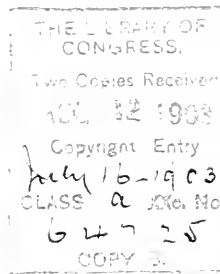 THE LIBRARY OF
CONGRESS.
Two Copies Received
12 1903
Copyright Entry
July 16-1903
CLASS a XXc. No
COPY